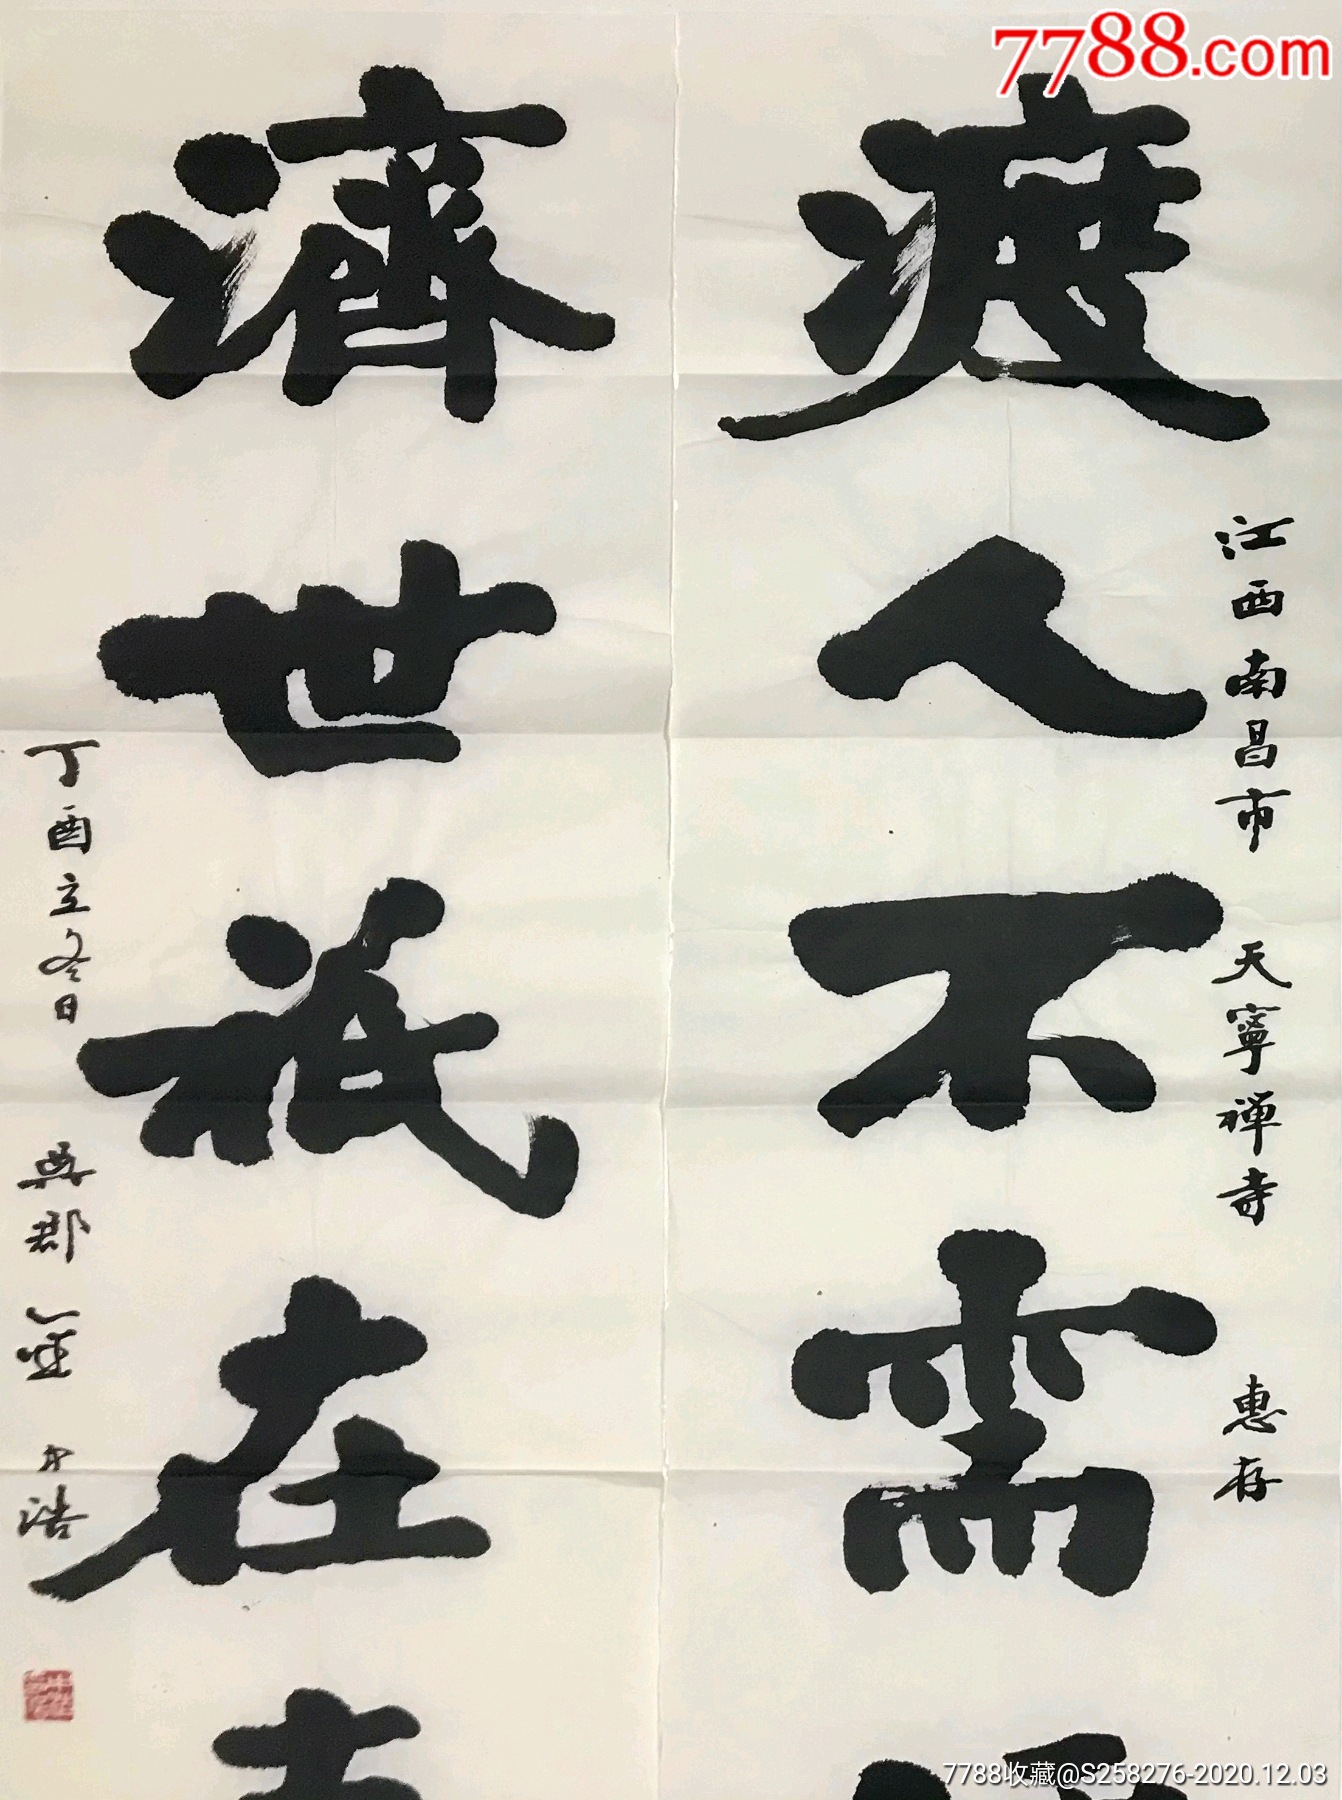 7788.com
江西南昌市 天寧禅寺 惠存
渡人不需
濟世祇在
丁酉立冬日 吳郡金中浩
7788收藏@S258276-2020.12.03